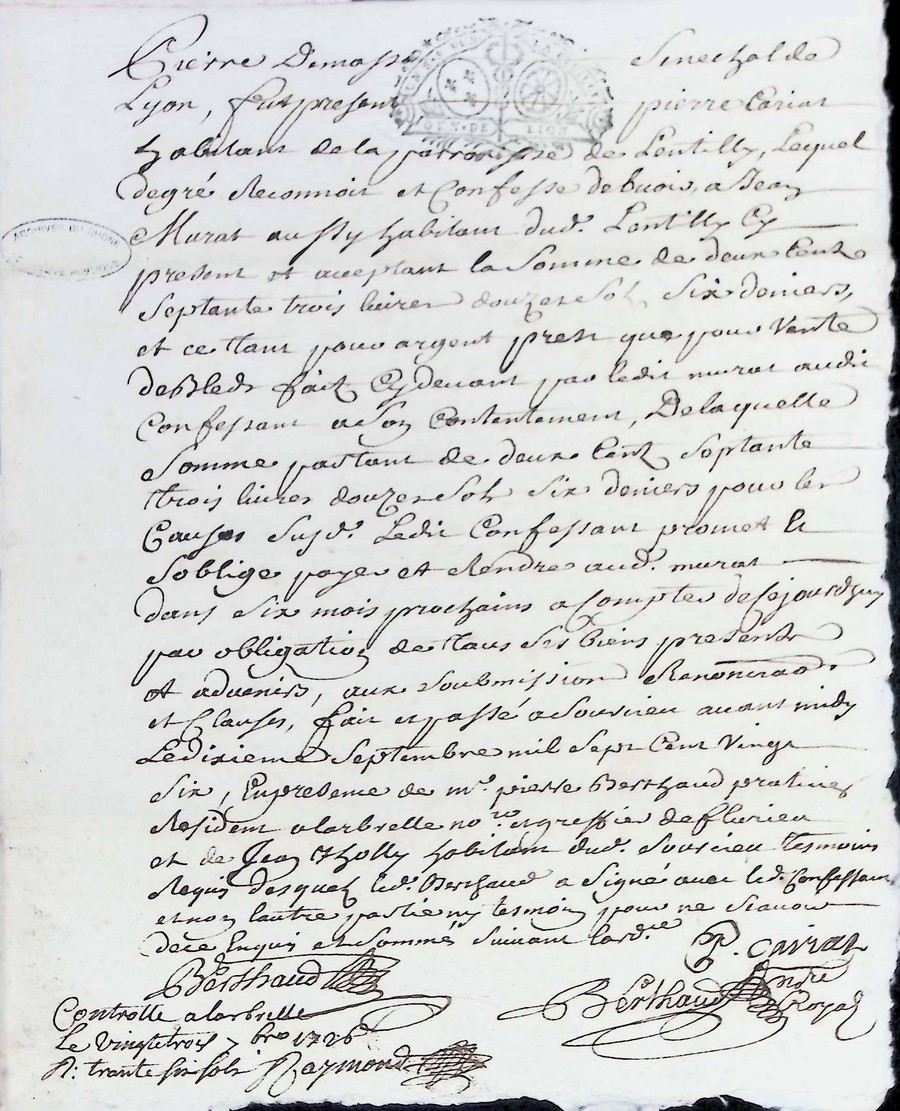 Pierre Demasso Senechal de
GEN. DE LION
Lyon, fut present pierre Cariat
habitant de la parroisse de Lentilly, Lequel
degré Reconnoit et Confesse debvoir a Jean
ARCHIVES DU RHONE
Murat aussy habitant dud. Lentilly Cy
present et acceptant la Somme de deux Cents
Septante trois livres douzes Sols Six deniers,
et ce tant pour argent prest que pour Vente
de Bleds fait Cy devant par ledit murat audit
Confessant a Son Contentement, De laquelle
Somme partant de deux Cent Septante
trois livres douzes Sols Six deniers pour les
Causes Susd. Ledit Confessant promet et
Soblige payer et Rendre aud. murat
dans Six mois prochains a Compter de Cejourdhuy
par obligation de tous Ses biens presents
et advenirs, aux Soubmissions Renonciaons
et Clauses, fait et passé a Sourcieu avant midy
Le dixieme Septembre mil Sept Cent Vingt
Six, En presence de me. pierre Berthaud praticien
Resident a larbrelle nore. et greffier de flurieu
et de Jean Tholly habitant dud. Sourcieu tesmoins
Requis desquels led. Berthaud a Signé avec led. Confessant
et non lautre partie ny tesmoin pour ne Scavoir
de ce Enquis et Sommés Suivant lordce
P. cariat
Berthaud
Berthaud nore Royal
Controlle a larbrelle
Le vingt trois 7bre 1726
R: trante six sols Raymond